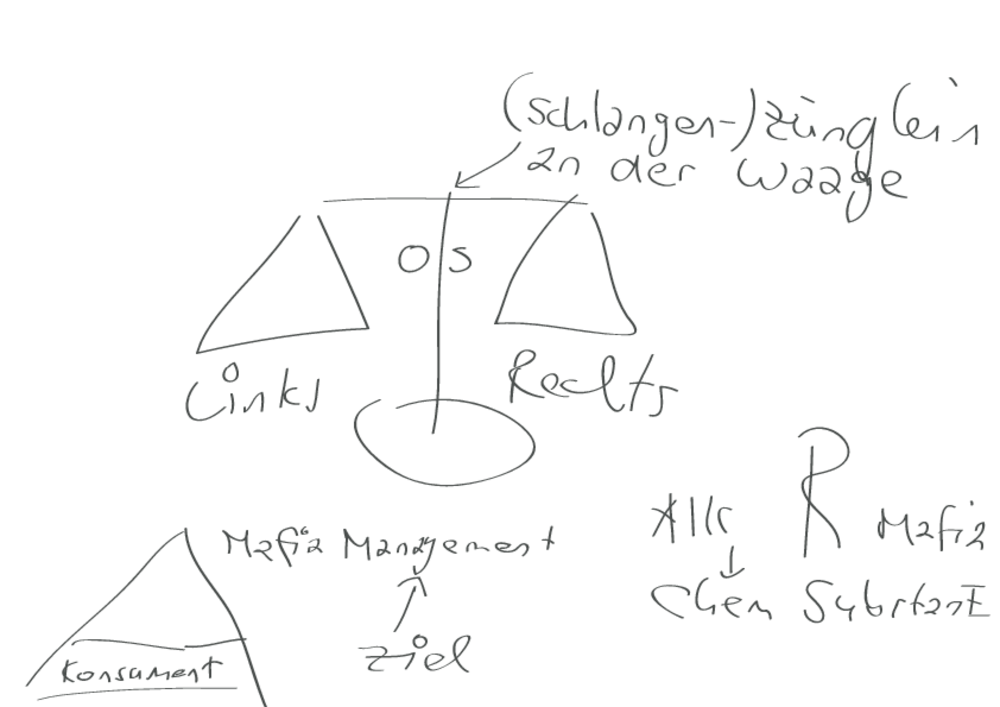 (Schlangen-)Zünglein
an der Waage
O S
Links
Rechts
Mafia Management
Ziel
Konsument
Alle R Mafia
Chem Substanz